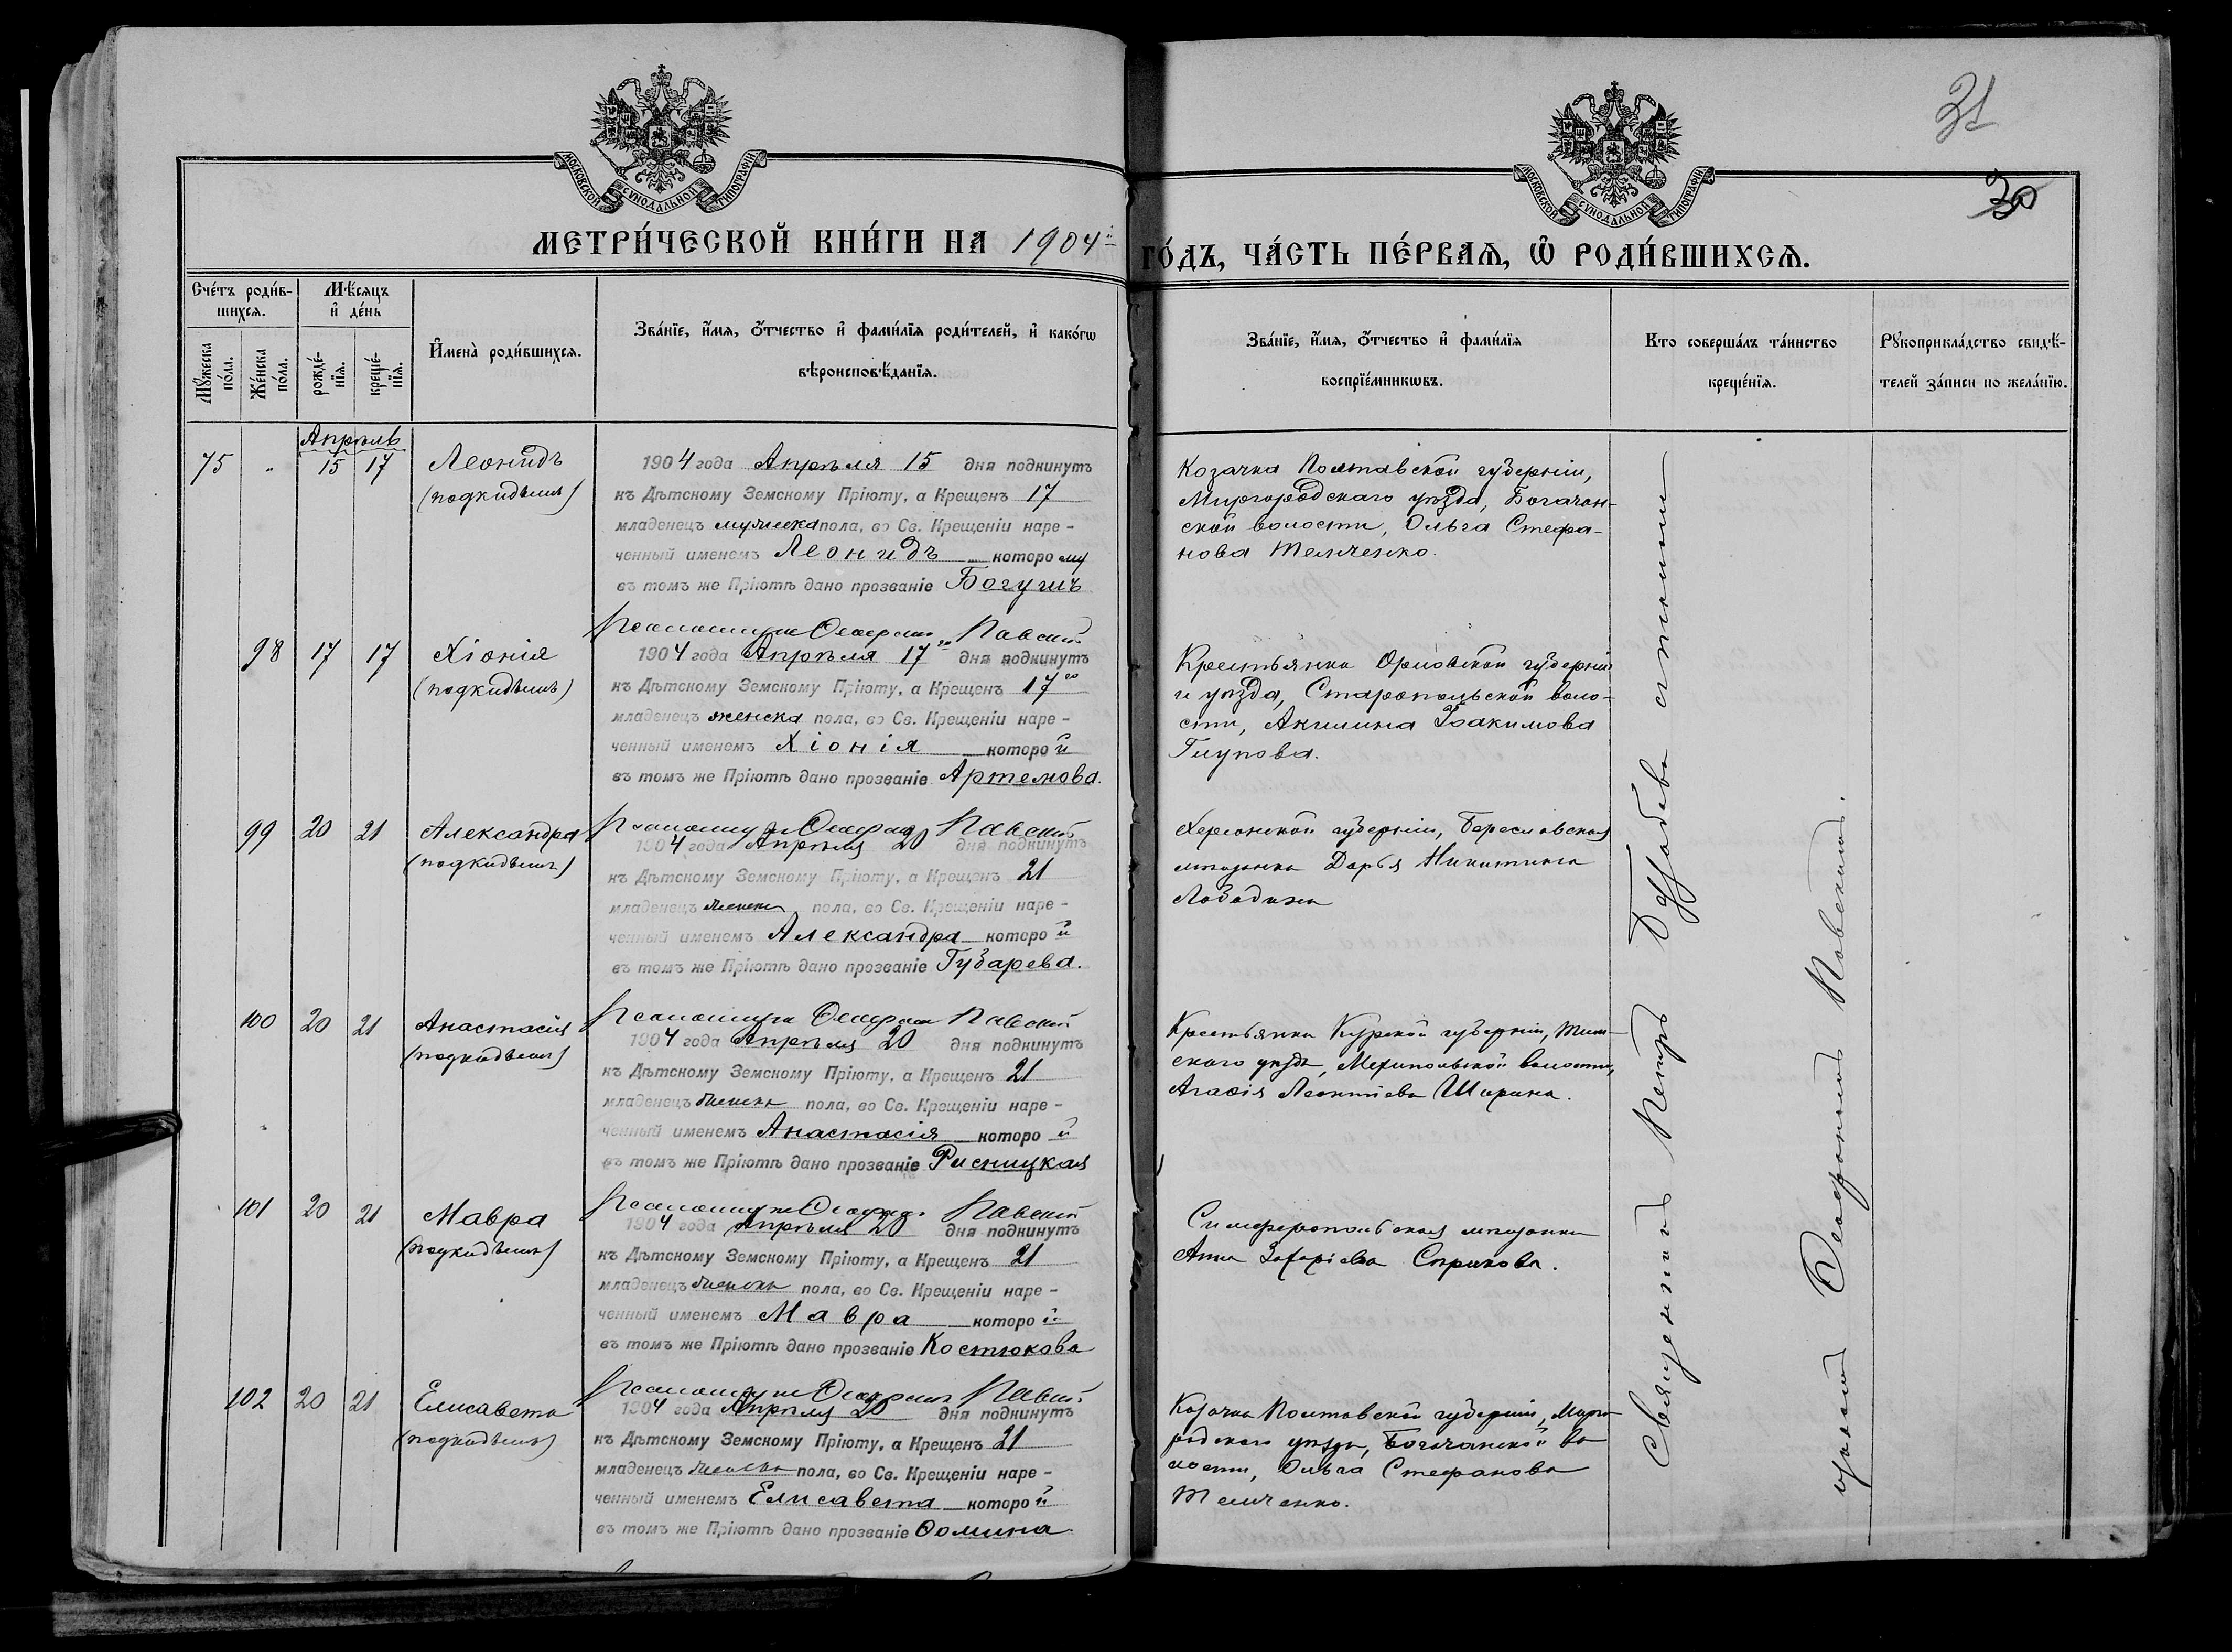 31
30
МОСКОВСКОЙ СѴНОДАЛЬНОЙ ТИПОГРАФІИ
МОСКОВСКОЙ СѴНОДАЛЬНОЙ ТИПОГРАФІИ
МЕТРИ́ЧЕСКОЙ КНИ́ГИ НА 1904й ГО́ДЪ, ЧА́СТЬ ПЕ́РВАѦ, Ѡ҆ РОДИ́ВШИХСѦ.
Сче́тъ роди́в-
шихсѧ.
Мѹ́жеска по́ла.
Же́нска по́ла.
Мѣ́сѧцъ
и҆ де́нь
рожде́-
нїѧ.
креще́-
нїѧ.
И҆мена̀ роди́вшихсѧ.
Зва́нїе, и҆́мѧ, ѻ҆́тчество и҆ фами́лїѧ роди́телей, и҆ како́гѡ
вѣроисповѣ́данїѧ.
Зва́нїе, и҆́мѧ, ѻ҆́тчество и҆ фами́лїѧ
воспрїе́мникѡвъ.
Кто соверша́лъ та́инство
креще́нїѧ.
Рꙋкоприкла́дство свидѣ́-
телей за́писи по жела́нїю.
Апрѣль
75 " 15 17 Леонидъ
(подкидышъ)
1904 года Апрѣля 15 дня подкинутъ
къ Дѣтскому Земскому Пріюту, а Крещенъ 17
младенецъ мужеска пола, во Св. Крещеніи наре-
ченный именемъ Леонидъ которому
въ томъ же Пріютѣ дано прозваніе Богушъ
Козачка Полтавской губерніи,
Миргородскаго уѣзда, Богачан-
ской волости, Ольга Стефа-
нова Темченко.
Псаломщикъ Павскій
98 17 17 Хіонія
(подкидышъ)
1904 года Апрѣля 17го дня подкинутъ
къ Дѣтскому Земскому Пріюту, а Крещенъ 17го
младенецъ женска пола, во Св. Крещеніи наре-
ченный именемъ Хіонія которой
въ томъ же Пріютѣ дано прозваніе Артемова.
Крестьянка Орловской губерніи
и уѣзда, волo-
сти, Акилина Іоакимова
Глупова.
Псаломщикъ Павскій
99 20 21 Александра
(подкидышъ)
1904 года Апрѣля 20 дня подкинутъ
къ Дѣтскому Земскому Пріюту, а Крещенъ 21
младенецъ женска пола, во Св. Крещеніи наре-
ченный именемъ Александра которой
въ томъ же Пріютѣ дано прозваніе Губарева.
Херсонской губерніи, Бериславская
мѣщанка Дарья Никитина
Псаломщикъ Павскій
100 20 21 Анастасія
(подкидышъ)
1904 года Апрѣля 20 дня подкинутъ
къ Дѣтскому Земскому Пріюту, а Крещенъ 21
младенецъ женска пола, во Св. Крещеніи наре-
ченный именемъ Анастасія которой
въ томъ же Пріютѣ дано прозваніе Рисницкая
Крестьянка Курской губерніи, Тим-
скаго уѣзда, волости,
Агафія Леонтіева Ширина.
Псаломщикъ Павскій
101 20 21 Мавра
(подкидышъ)
1904 года Апрѣля 20 дня подкинутъ
къ Дѣтскому Земскому Пріюту, а Крещенъ 21
младенецъ женска пола, во Св. Крещеніи наре-
ченный именемъ Мавра которой
въ томъ же Пріютѣ дано прозваніе Костюкова
Симферопольская мѣщанка
Анна Захаріева Сприкова.
Псаломщикъ Павскій
102 20 21 Елисавета
(подкидышъ)
1904 года Апрѣля 20 дня подкинутъ
къ Дѣтскому Земскому Пріюту, а Крещенъ 21
младенецъ женска пола, во Св. Крещеніи наре-
ченный именемъ Елисавета которой
въ томъ же Пріютѣ дано прозваніе Ѳомина
Козачка Полтавской губерніи, Мирго-
родскаго уѣзда, Богачанской во-
лости, Ольга Стефанова
Темченко.
Священникъ Петръ
Павскимъ.